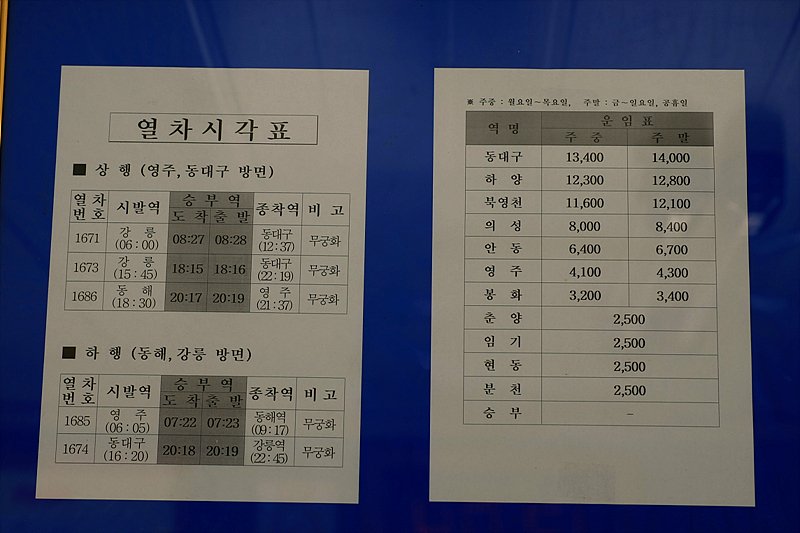 열차시각표
■ 상 행 (영주,동대구 방면)
열 차 번 호 시발역 승 부 역 종착역 비 고
도 착 출 발
1671 강 릉 (06:00) 08:27 08:28 동대구 (12:37) 무궁화
1673 강 릉 (15:45) 18:15 18:16 동대구 (22:19) 무궁화
1686 동 해 (18:30) 20:17 20:19 영 주 (21:37) 무궁화
■ 하 행 (동해,강릉 방면)
열 차 번 호 시발역 승 부 역 종착역 비 고
도 착 출 발
1685 영 주 (06:05) 07:22 07:23 동해역 (09:17) 무궁화
1674 동대구 (16:20) 20:18 20:19 강릉역 (22:45) 무궁화
※ 주중 : 월요일~목요일, 주말 : 금~일요일, 공휴일
역 명 운 임 표
주 중 주 말
동대구 13,400 14,000
하 양 12,300 12,800
북영천 11,600 12,100
의 성 8,000 8,400
안 동 6,400 6,700
영 주 4,100 4,300
봉 화 3,200 3,400
춘 양 2,500
임 기 2,500
현 동 2,500
분 천 2,500
승 부 -